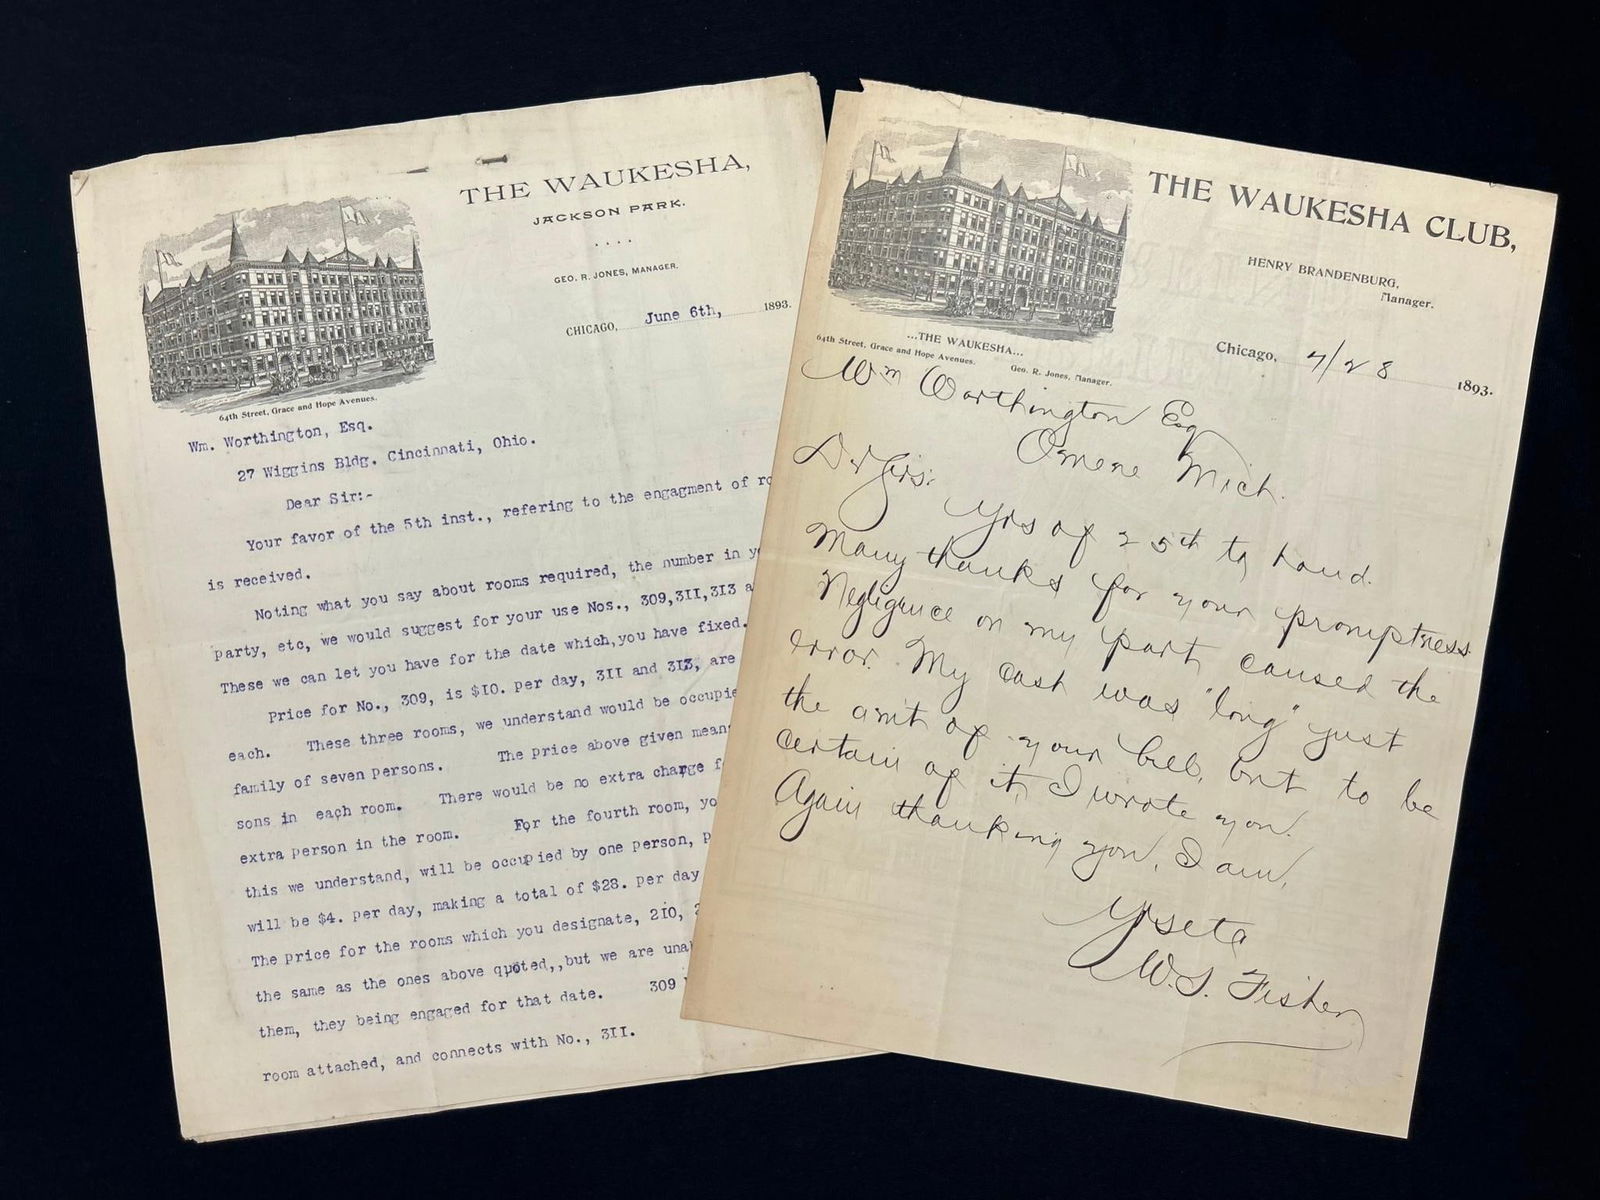 THE WAUKESHA,
JACKSON PARK.
. . . .
GEO. R. JONES, MANAGER.
CHICAGO, June 6th, 1893.
64th Street, Grace and Hope Avenues.
Wm. Worthington, Esq.
27 Wiggins Bldg. Cincinnati, Ohio.
Dear Sir:-
Your favor of the 5th inst., refering to the engagment of
is received.
Noting what you say about rooms required, the number in
party, etc, we would suggest for your use Nos., 309,311,313
These we can let you have for the date which,you have fixed.
Price for No., 309, is $10. per day, 311 and 313, are
each. These three rooms, we understand would be occupie
family of seven persons. The price above given means
sons in each room. There would be no extra charge f
extra person in the room. For the fourth room, yo
this we understand, will be occupied by one person, p
will be $4. per day, making a total of $28. per day
The price for the rooms which you designate, 210, 2
the same as the ones above quoted,,but we are una
them, they being engaged for that date. 309
room attached, and connects with No., 311.
THE WAUKESHA CLUB,
HENRY BRANDENBURG,
Manager.
...THE WAUKESHA...
64th Street, Grace and Hope Avenues.
Geo. R. Jones, Manager.
Chicago, 7/28 1893.
Wm Worthington Esq
Omene Mich.
Dr Sirs:
Yrs of 25th to hand.
Many thanks for your promptness
Negligence on my part caused the
error. My cash was "long" just
the amt of your bill, but to be
certain of it, I wrote you.
Again thanking you, I am,
Yrs etc
W. S. Fisher